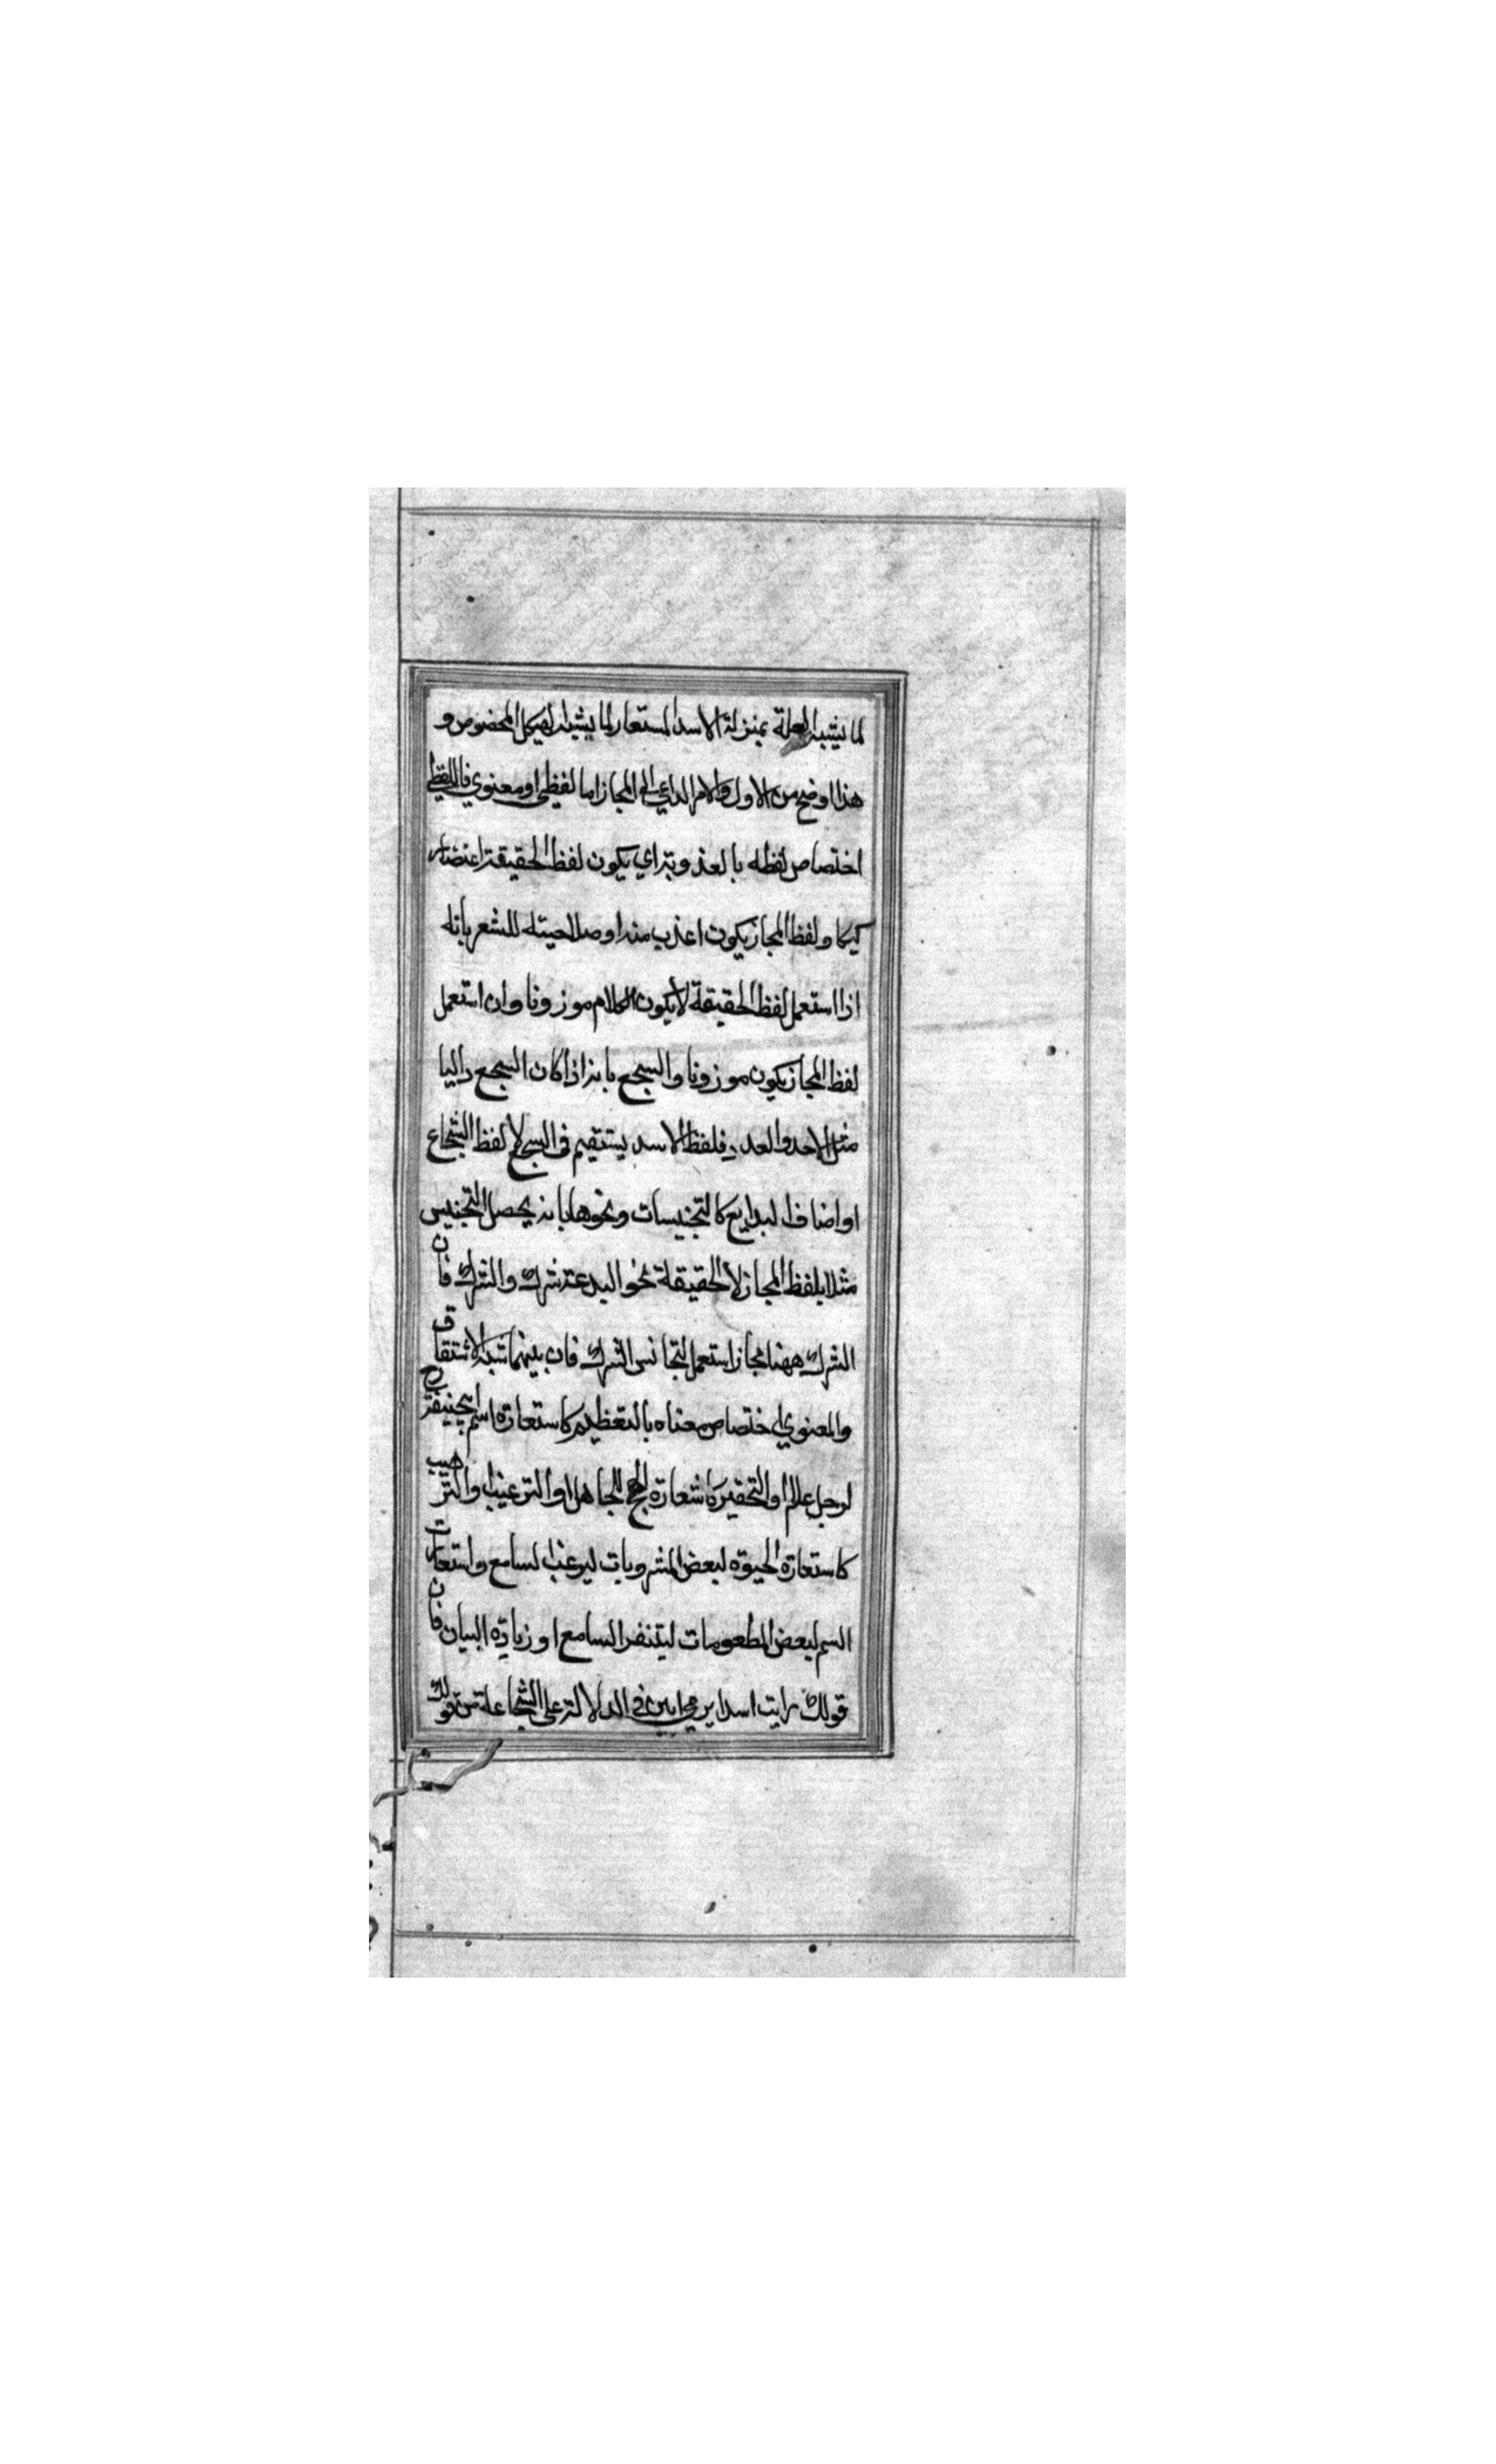 لما يشبه العلة بمنزلة الاسد المستعار لما يشبه الهيكل المخصوص و
هذا اوضح من الاول والامر الداعي الى المجاز اما لفظي او معنوي فاللفظي
اختصاص لفظه بالعذوبة اي يكون لفظ الحقيقة
ولفظ المجاز يكون اعذب منه او صلاحيته للشعر بانه
اذا استعمل لفظ الحقيقة لا يكون الكلام موزونا وان استعمل
لفظ المجاز يكون موزونا والسجع بانه اذا كان السجع داليا
مثل الاحد والعدد فلفظ الاسد يستقيم في السجع لا لفظ الشجاع
او اصناف البدايع كالتجنيسات ونحوها بانه يحصل التجنيس
مثلا بلفظ المجاز لا الحقيقة نحو البدعة شرك والشرك فان
الشرك ههنا مجاز استعمل لتجانس الشرك فان بينهما شبه الاشتقاق
والمعنوي اختصاص معناه بالتعظيم كاستعارة اسم ابي حنيفة رح
لرجل عالم او التحقير كاستعارة الهمج للجاهل او الترغيب او الترهيب
كاستعارة ماء الحيوة لبعض المشروبات ليرغب السامع واستعارت
السم لبعض المطعومات ليتنفر السامع او زيادة البيان فان
قولك رايت اسدا يرمي ابين في الدلالة على الشجاعة من قولك